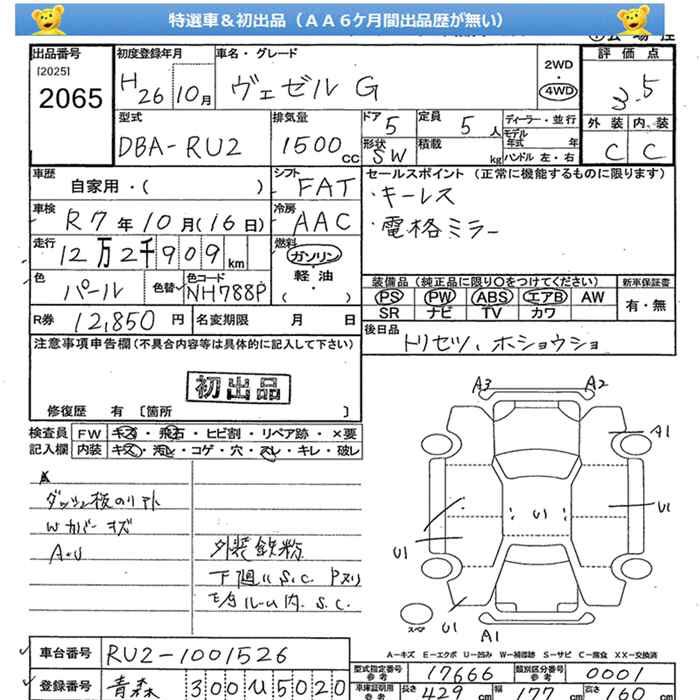 特選車＆初出品（ＡＡ６ケ月間出品歴が無い）
出品番号 初度登録年月 車名・グレード 評価点
[2025]
2065
H26 10月 ヴェゼル G 2WD 4WD 3.5
型式 排気量 ドア 5 定員 5 人 ディーラー・並行 外装 内装
DBA-RU2 1500 cc 形状 SW 積載 kg モデル年式 年 ハンドル 左・右 C C
車歴 自家用・( ) シフト FAT セールスポイント (正常に機能するものに限ります)
・キーレス
車検 R7年10月(16日) 冷房 AAC
・電格ミラー
走行 12万2千909km 燃料 ガソリン 軽油 ( )
色 パール 色替 色コード NH788P
装備品 (純正品に限り○をつけてください) 新車保証書
PS PW ABS エアB AW 有・無
SR ナビ TV カワ
R券 12,850円 名変期限 月 日 後日品 トリセツ、ホショウショ
注意事項申告欄(不具合内容等は具体的に記入して下さい)
初出品
修復歴 有 [箇所 ]
検査員 FW キズ・飛石・ヒビ割・リペア跡・×要
記入欄 内装 キズ・汚レ・コゲ・穴・スレ・キレ・破レ
Wカバーキズ
A・U
外装鉄粉
下廻りS.C.
内 S.C.
A3 A2
A1
U1
U1
U1
U1 A1
スペア
A-キズ E-エクボ U-凹み W-補修跡 S-サビ C-腐食 XX-交換済
車台番号 RU2-1001526
登録番号 青森 300 U 5020
型式指定番号 参考 17666 類別区分番号 参考 0001
車庫証明用 参考 長さ 429 cm 幅 177 cm 高さ 160 cm